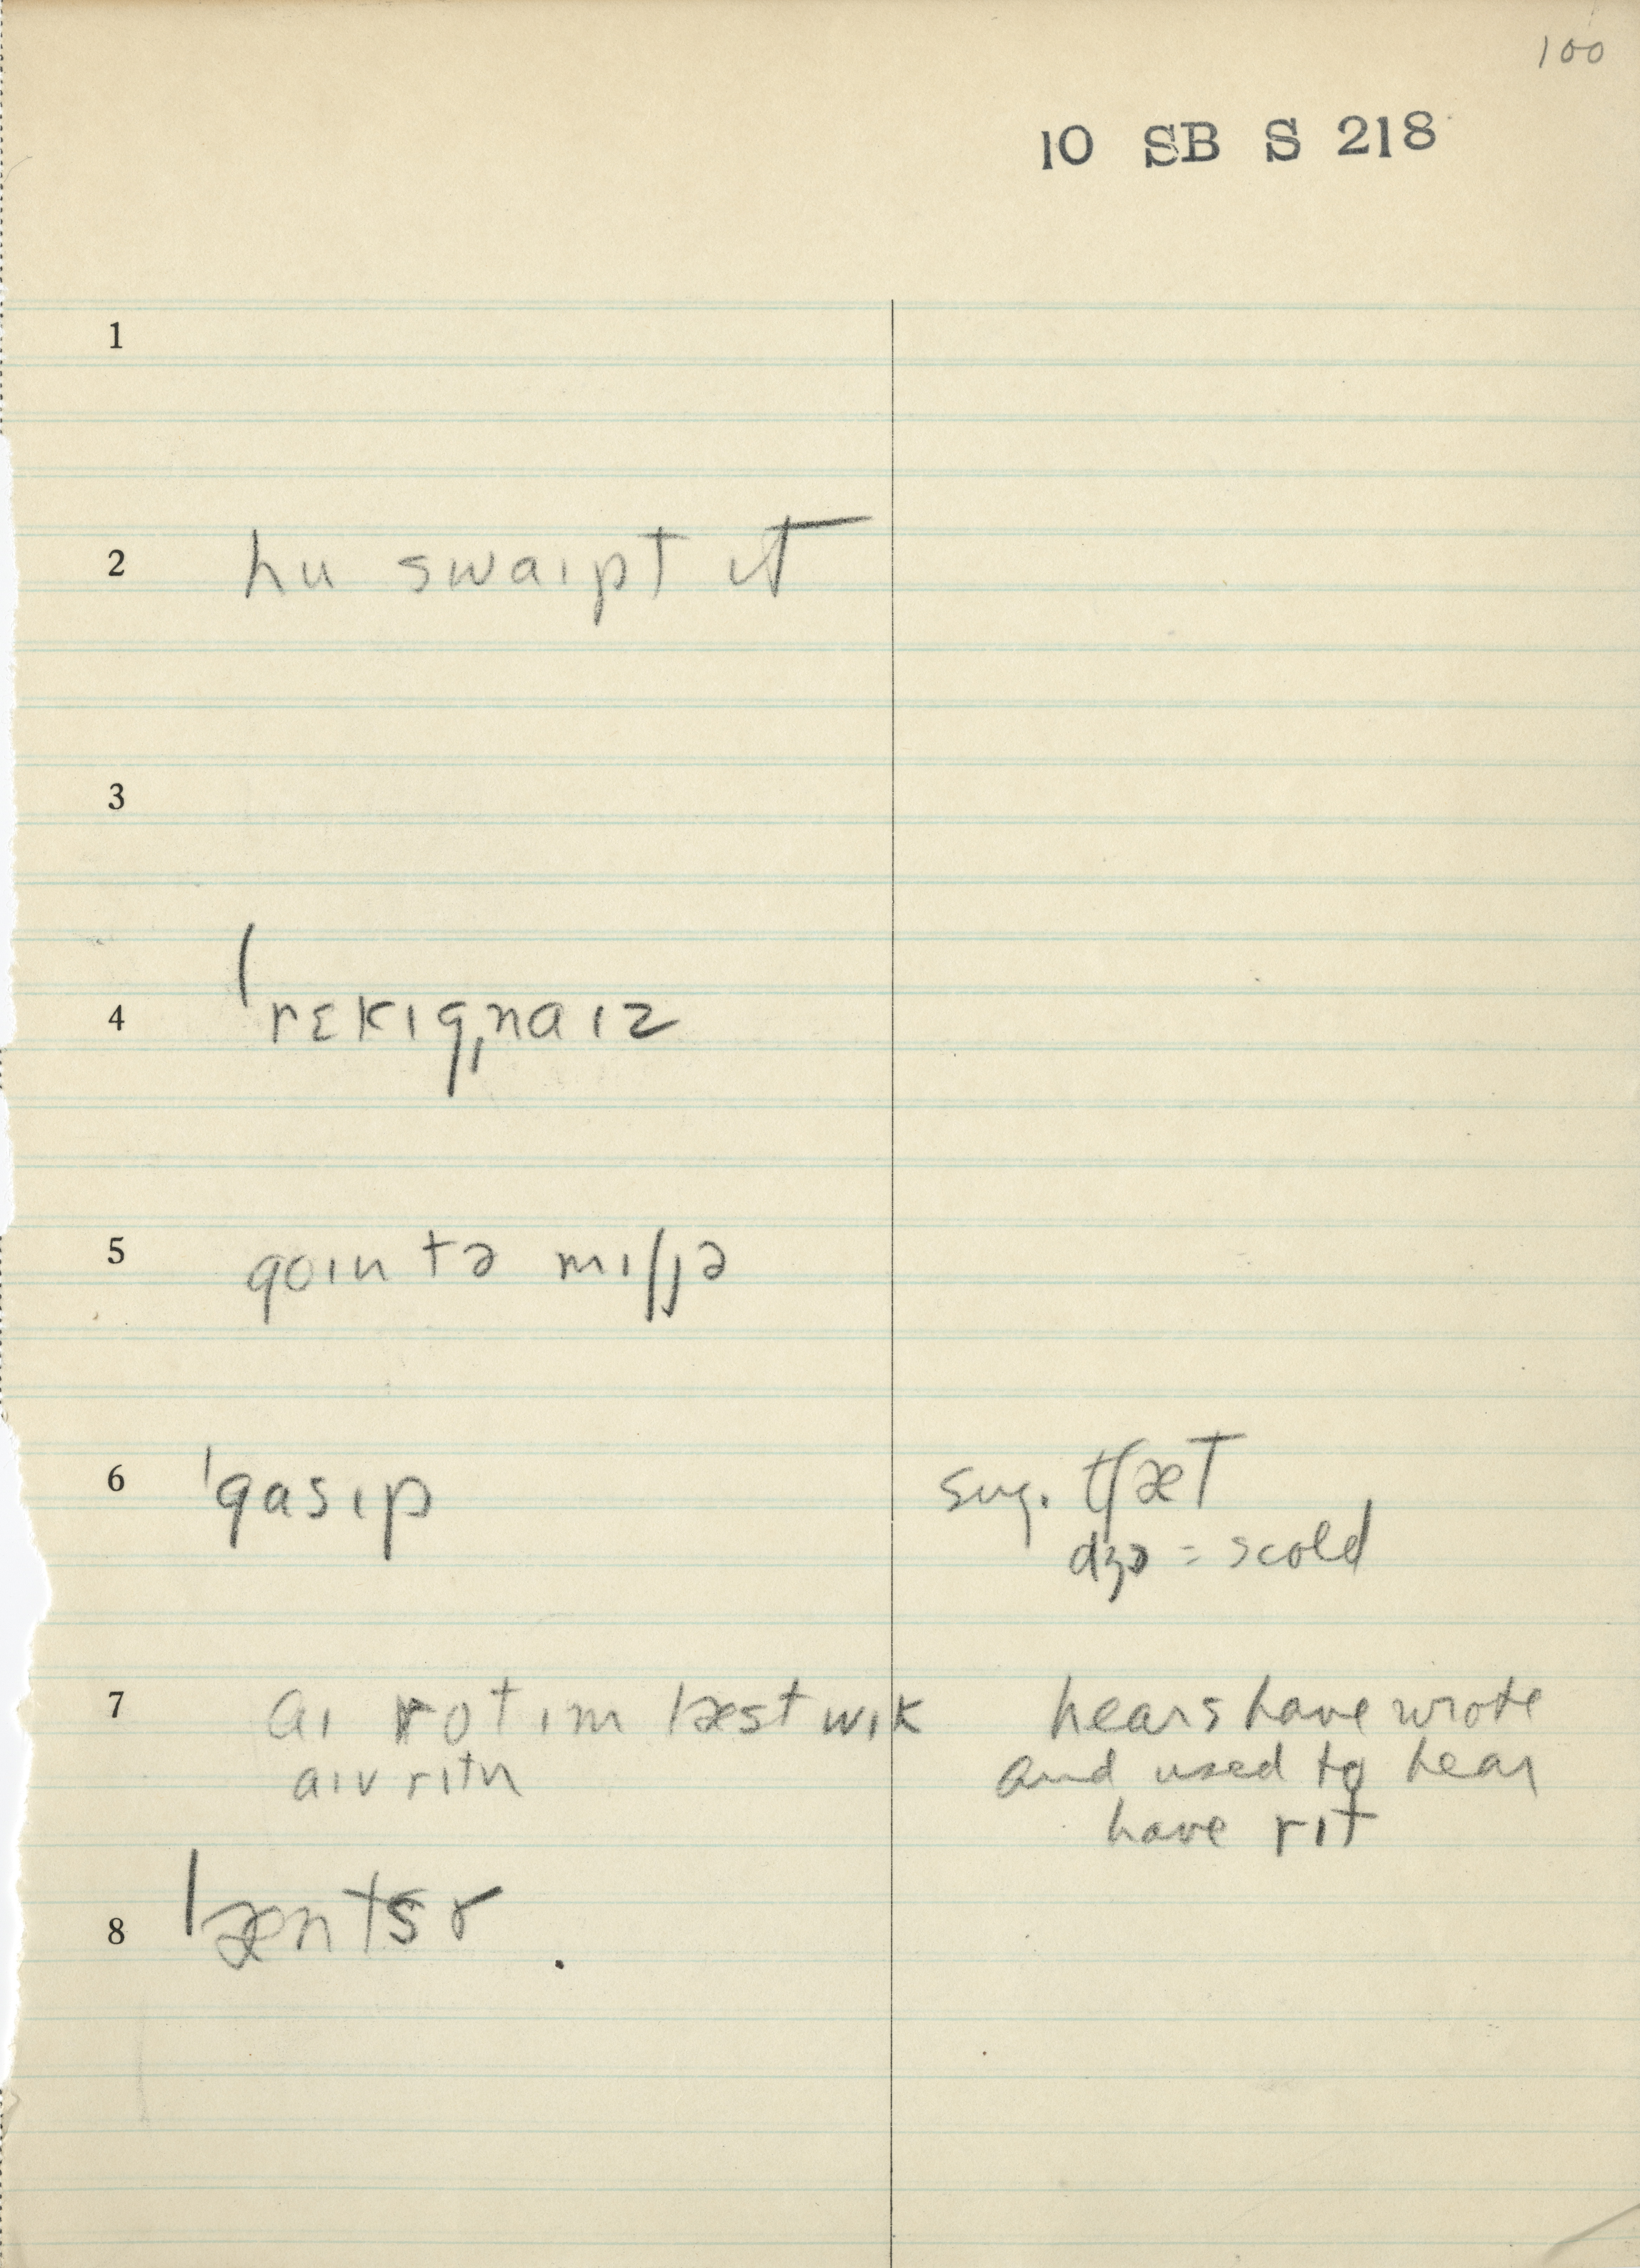 100
10 SB S 218
1
2 hu swaɪpt ɪt
3
4 ˈrɛkɪgˌnaɪz
5 goɪn tə mɪʃjə
6 ˈgasɪp sug. tʃæt
dʒɔ = scold
7 aɪ rot ɪm læst wik hears have wrote
aɪv rɪtn and used to hear
have rɪt
8 ˈæntsɚ